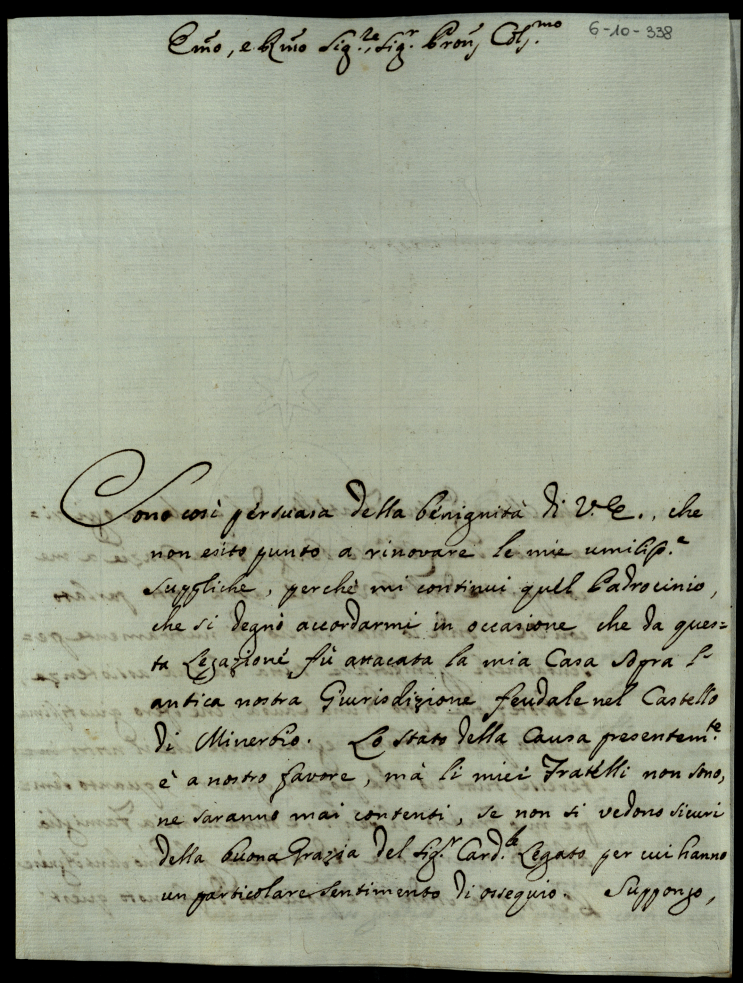 Emo, e Rmo Sig.re, Sig.r Pron Col.mo
6-10-338
Sono così persuasa della benignità di V.E., che
non esito punto a rinovare le mie umiliss.e
suppliche, perchè mi continui quel Padrocinio,
che si degnò accordarmi in occasione che da ques=
ta Legazione fù attacata la mia Casa sopra l'
antica nostra Giurisdizione feudale nel Castello
di Minerbio. Lo stato della Causa presentem.te
è a nostro favore, mà li miei Fratelli non sono,
ne saranno mai contenti, se non si vedono sicuri
della buona Grazia del Sig.r Card.le Legato per cui hanno
un particolare sentimento di ossequio. Suppongo,